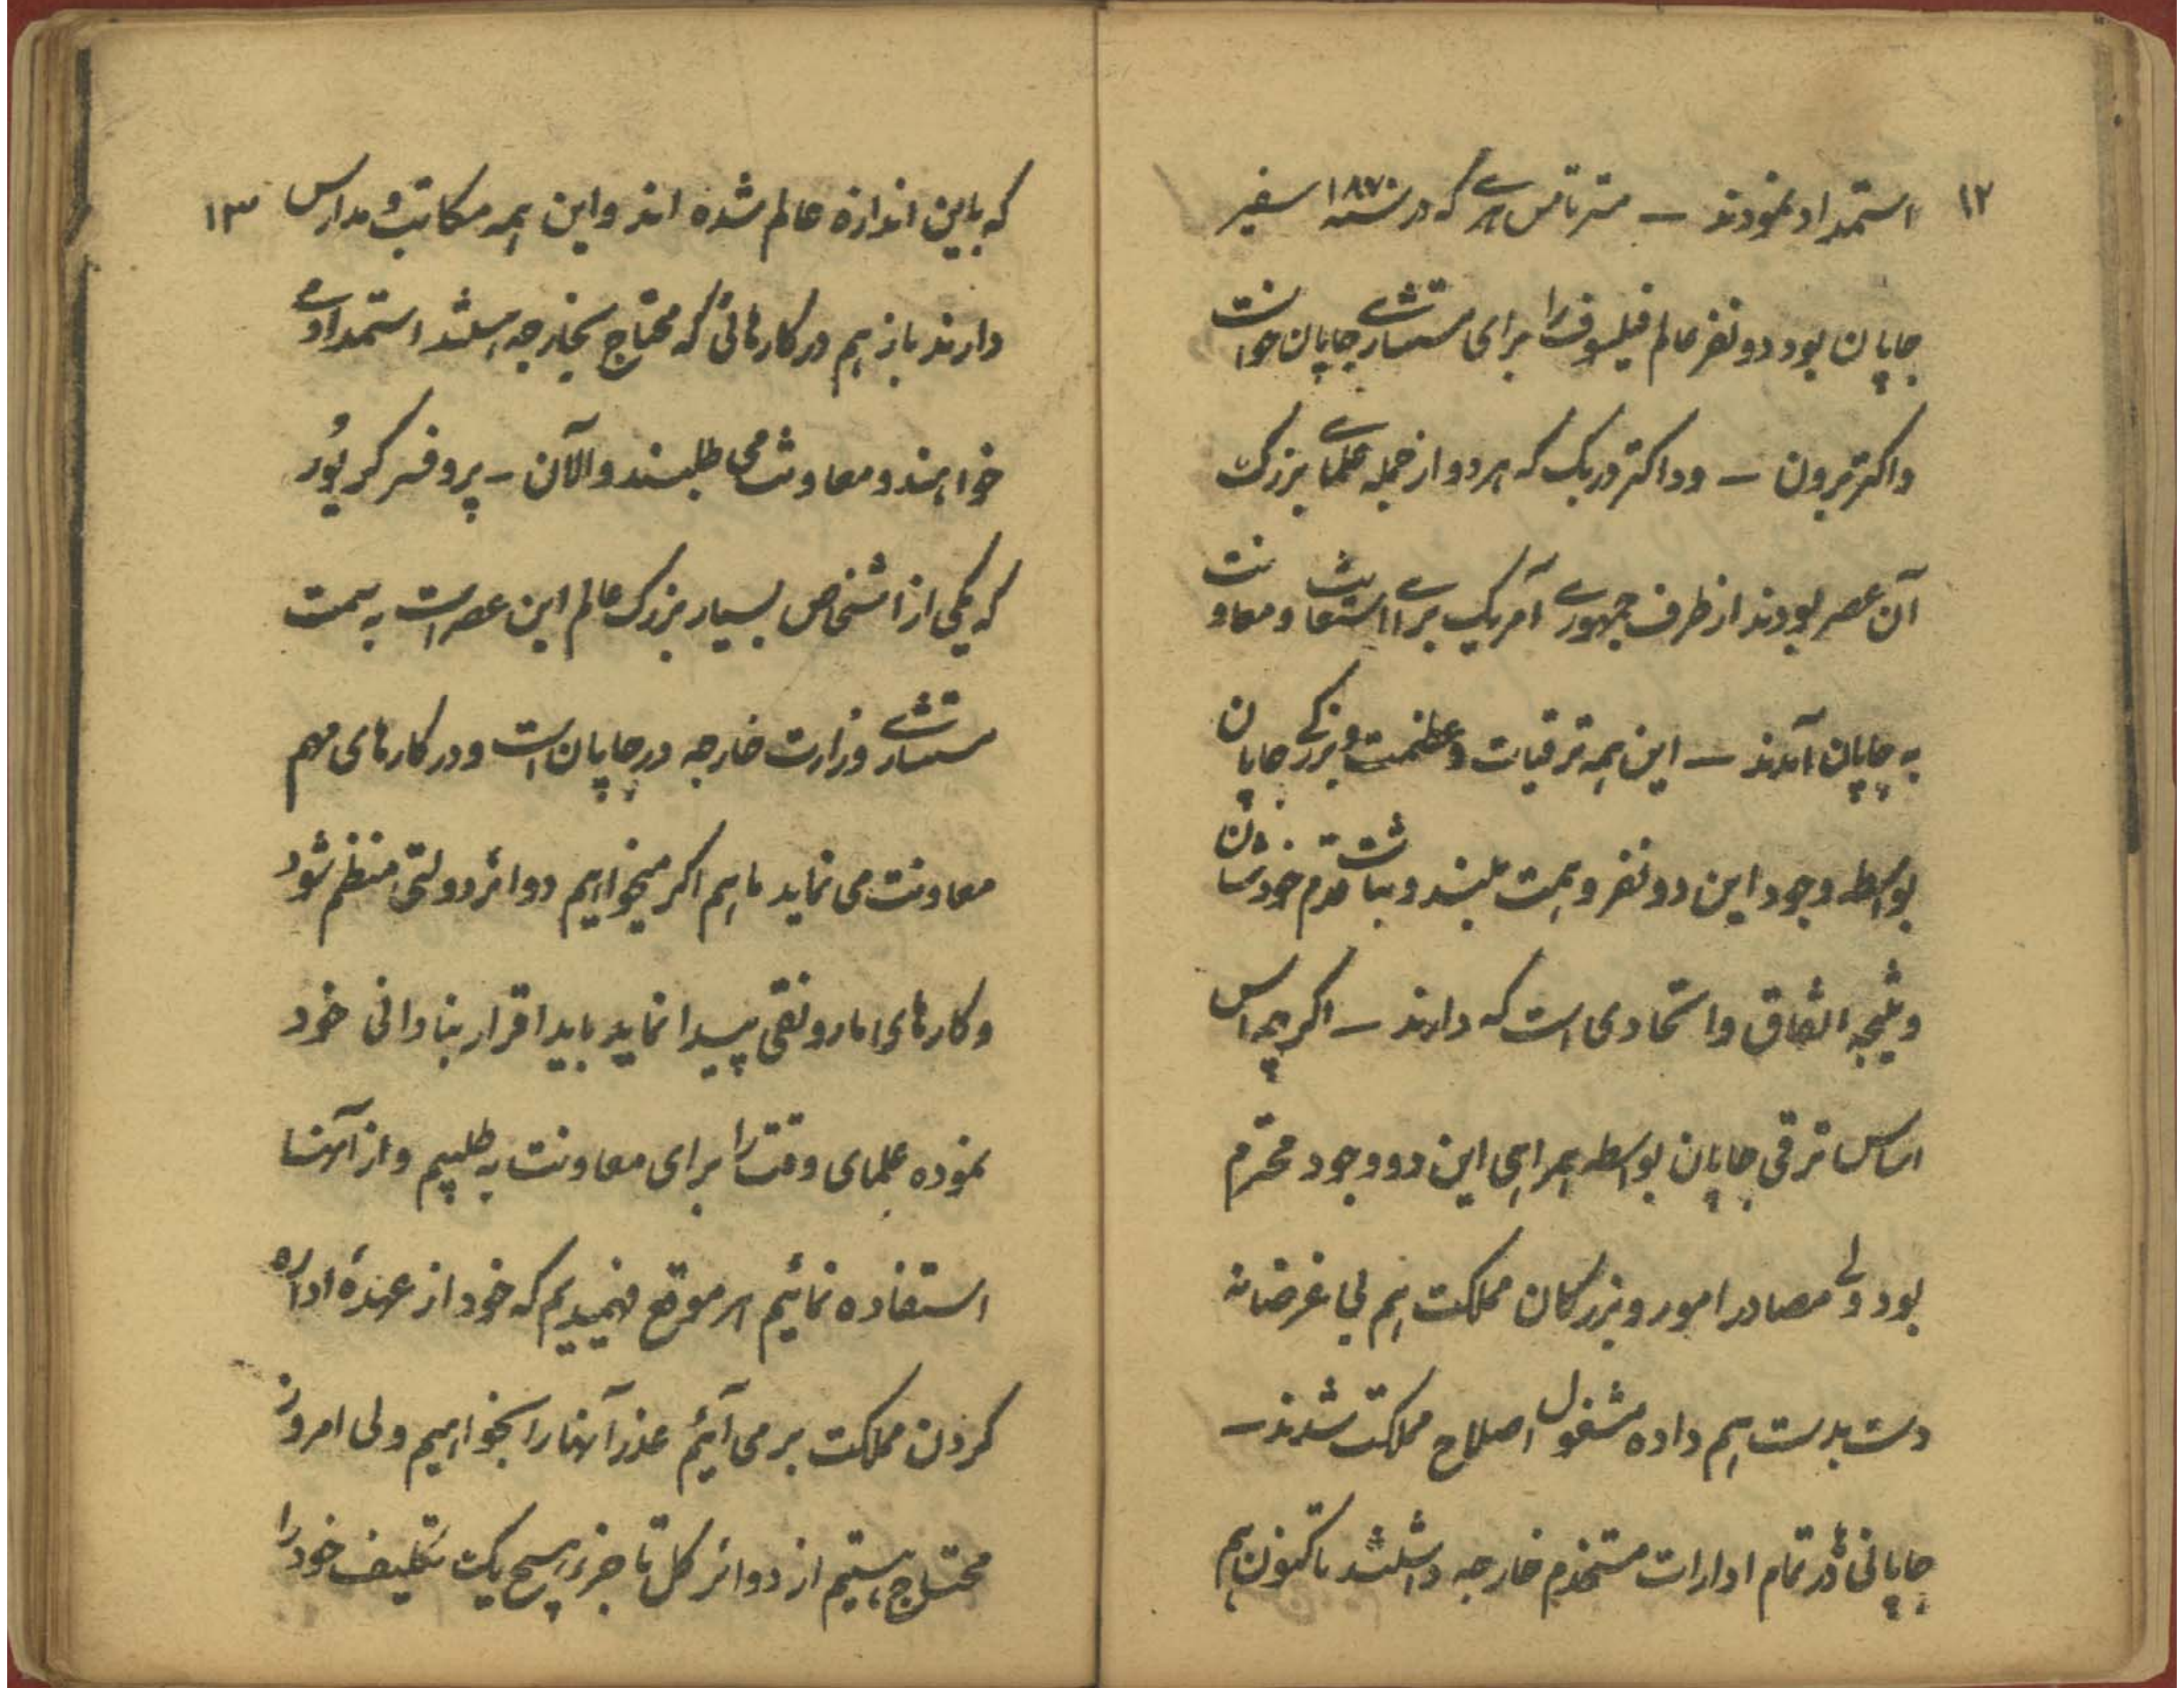 ۱۲
استمداد نمودند — مستر تامس هری که در سنه ۱۸۷۰ سفیر
جاپان بود دو نفر عالم فیلسوف را برای مستشاری جاپان خواست
داکتر برون — و داکتر دربک که هر دو از جمله علمای بزرگ
آن عصر بودند از طرف جمهوری آمریک برای استعانت و معاونت
به جاپان آمدند — این همه ترقیات و عظمت و بزرگی جاپان
بواسطه وجود این دو نفر و همت بلند و ثبات قدم خودشان
و نتیجه اتفاق و اتحادی است که دارند — اگرچه اس
اساس ترقی جاپان بواسطه همراهی این دو وجود محترم
بود ولی مصادر امور و بزرگان مملکت هم بی غرضانه
دست بدست هم داده مشغول اصلاح مملکت شدند —
جاپانی‌ها در تمام ادارات مستخدم خارجه داشتند تا کنون هم
۱۳
که باین اندازه عالم شده اند و این همه مکاتب و مدارس
دارند باز هم در کارهائی که محتاج بخارجه هستند استمداد می
خواهند و معاونت می طلبند و الآن — پروفسر کر پور
که یکی از اشخاص بسیار بزرگ عالم این عصر است به سمت
مستشاری وزارت خارجه در جاپان است و در کارهای مهم
معاونت می نماید ما هم اگر میخواهیم دوائر دولتی منظم شود
و کارهای ما رونقی پیدا نماید باید اقرار بنادانی خود
نموده علمای وقت را برای معاونت به طلبیم و از آنها
استفاده نمائیم هر موقع فهمیدیم که خود از عهدهٔ اداره
کردن مملکت بر می آئیم عذر آنها را بخواهیم ولی امروز
محتاج هستیم از دوائر کل تا جزء هیچ یک تکلیف خود را